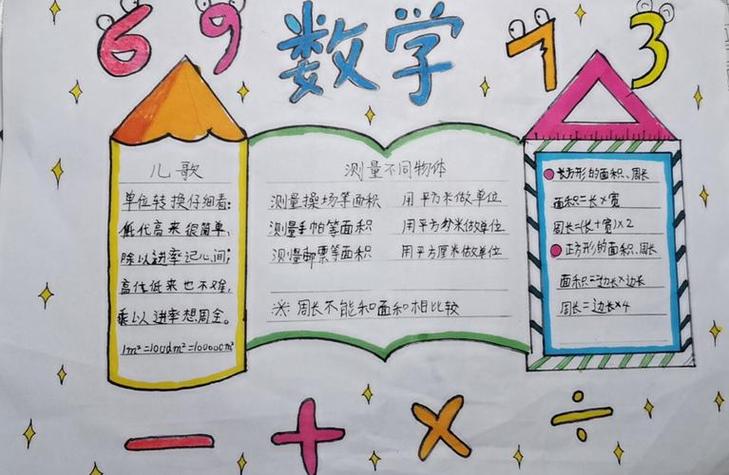 6 9 数学 7 3
儿歌
单位转换仔细看:
低代高来很简单,
除以进率记心间;
高代低来也不难,
乘以进率想周全。
1m²=100dm²=10000cm²
测量不同物体
测量操场等面积 用平方米做单位
测量手帕等面积 用平方分米做单位
测量邮票等面积 用平方厘米做单位
※ 周长不能和面积相比较
长方形的面积、周长
面积=长×宽
周长=(长+宽)×2
正方形的面积、周长
面积=边长×边长
周长=边长×4
− + × ÷